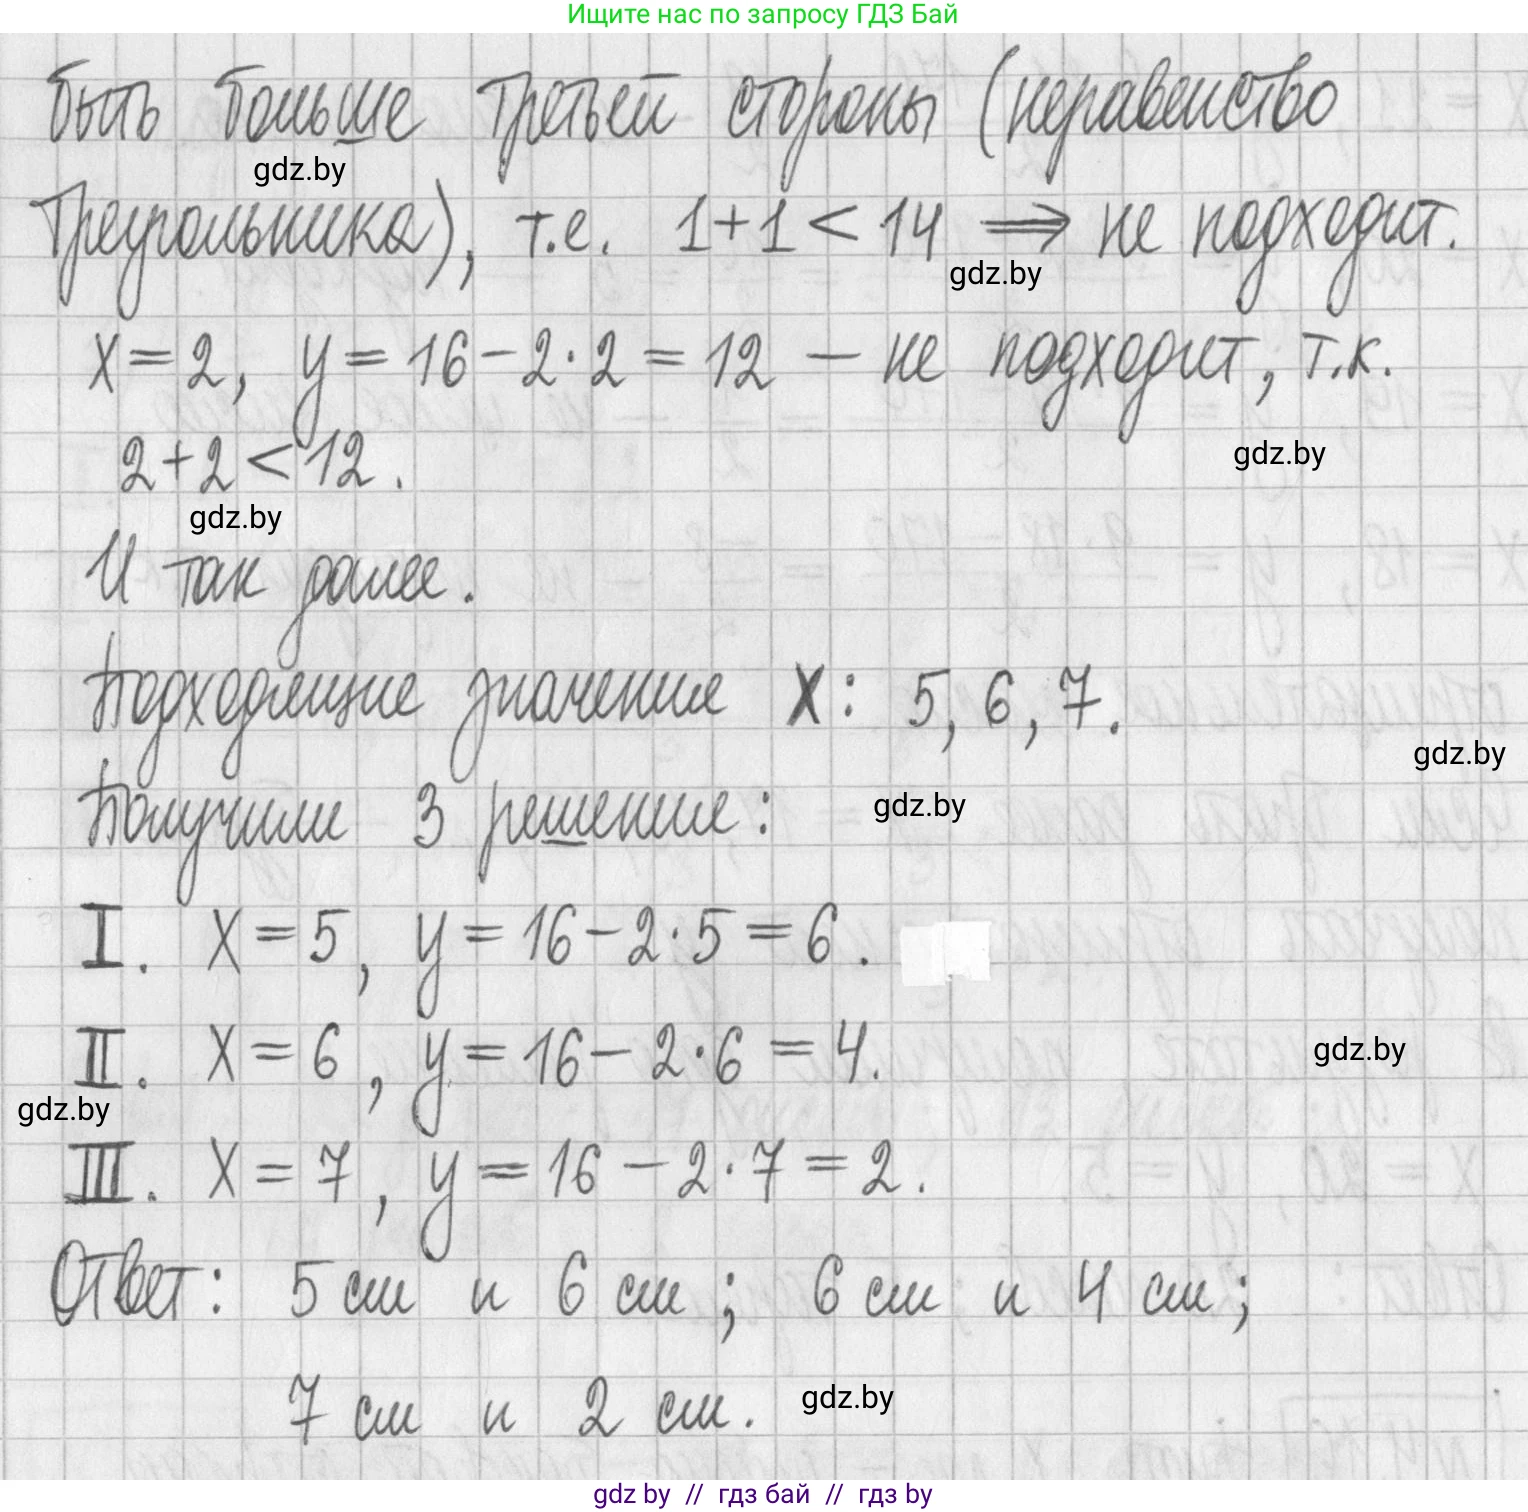 Ищите нас по запросу ГДЗ Бай
быть больше третьей стороны (неравенство
gdz.by
треугольника), т.е. 1+1 < 14 ⟹ не подходит.
gdz.by
x = 2, y = 16 - 2·2 = 12 — не подходит, т.к.
2+2 < 12.
gdz.by
gdz.by
И так далее.
Подходящие значения x: 5, 6, 7.
gdz.by
Получили 3 решения:
gdz.by
I. x = 5, y = 16 - 2·5 = 6.
II. x = 6, y = 16 - 2·6 = 4.
gdz.by
gdz.by
III. x = 7, y = 16 - 2·7 = 2.
Ответ: 5 см и 6 см; 6 см и 4 см;
7 см и 2 см.
gdz.by
gdz by // гдз бай // гдз by